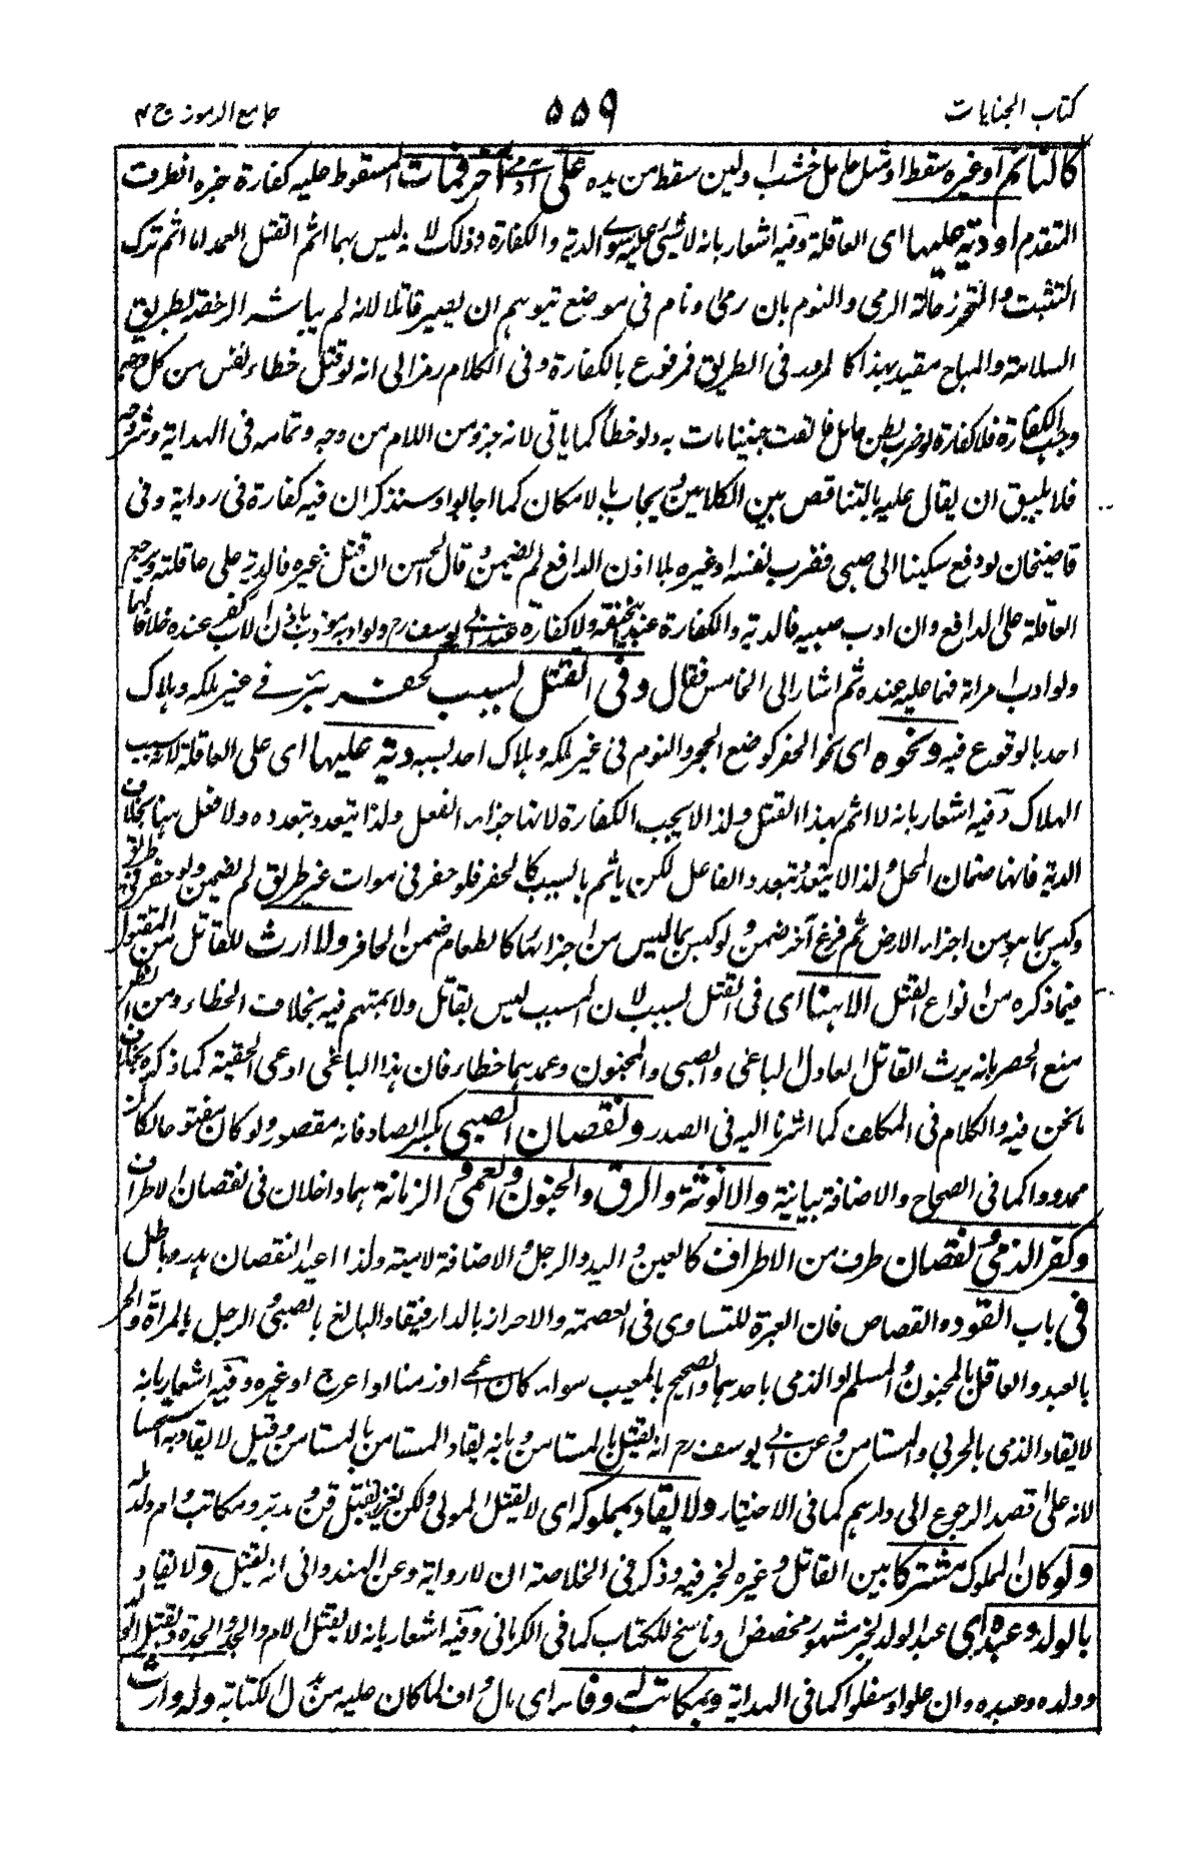 كتاب الجنايات ٥٥٩ جامع الرموز ج ٤
كالنائم او غيره سقط او مثل حامل خشب او لبن سقط من يده على آدمي آخر فمات المسقوط عليه كفارة خبره الظرف
المتقدم او دية عليها اى العاقلة وفيه اشعار بانه لا شيئ عليه سوى الدية والكفارة وذلك لانه ليس بهما اثم القتل العمد اما اثم ترك
التثبت والتحرز حالة الرمى والنوم بان رمى ونام فى موضع يتوهم ان يصير قاتلا لانه لم يباشر الرخصة لطريق
السلامة والمباح مقيد بهذا كالمرور فى الطريق فمرفوع بالكفارة وفى الكلام رمز الى انه لو قتل خطاء نفس من كل وجه
وجب الكفارة فلا كفارة لو ضرب بطن حامل فالقت جنينا مات به ولو خطأ كما ياتى لانه جزء من الام من وجه وتمامه فى الهداية وشروحه
فلا يليق ان يقال عليه بالتناقص بين الكلامين ويجاب بالامكان كما اجابوا وسنذكر ان فيه كفارة فى رواية وفى
قاضيخان لو دفع سكينا الى صبى فضرب نفسه او غيره بلا اذن الدافع لم يضمن وقال الحسن ان قتل غيره فالدية على عاقلته ويرجع
العاقلة على الدافع وان ادب صبيه فالدية والكفارة عند ابيحنيفه ولا كفارة عند ابى يوسف رح ولو ادبه مؤدب باذن الاب كفر عنده خلافا لهما
ولو ادب امراة فهما عليه عنده ثم اشار الى الخامس فقال وفى القتل بسبب كحفر بئر فے غير ملكه وهلاك
احد بالوقوع فيه ونحوه اى نحو الحفر كوضع الحجر والنوم فى غير ملكه وهلاك احد بسببه دية عليها اى على العاقلة لانه سبب
الهلاك وفيه اشعار بانه لا اثم بهذا القتل ولذا لا يجب الكفارة لانها جزاء الفعل ولذا يتعدد بتعدده ولا فعل هنا بخلاف
الدية فانها ضمان المحل ولذا لا يتعدد بتعدد الفاعل لكن ياثم بالسبب كالحفر فلو حفر فى موات غير طريق لم يضمن ولو حفر فى طريق
وكبس بما هو من اجزاء الارض ثم فرغ آخر ضمن ولو كبس بما ليس من اجزائها كالطعام ضمن الحافر ولا ارث للقاتل من المقتول
فيما ذكره من انواع القتل الا هنا اى فى القتل بسبب لان المسبب ليس بقاتل ولا يتهم فيه بخلاف الخطاء ومن النظر
منع الحصر بانه يرث القاتل العادل الباغى والصبى والمجنون وعمدهما خطاء فان هذا الباغى ادعى الحقية كما ذكره بخلاف
ما نحن فيه والكلام فى المكلف كما اشرنا اليه فى الصدر ونقصان الصبى بكسر الصاد فانه مقصور ولو كان مفتوحا لكان
ممدودا كما فى الصحاح والاضافة بيانية والانوثة والرق والجنون والعمى والزمانة هما داخلان فى نقصان الاطراف
وكفر الذمى ونقصان طرف من الاطراف كالعين واليد والرجل والاضافة لامية ولذا اعيد النقصان هدر وباطل
فى باب القود والقصاص فان العبرة للتساوى فى العصمة والاحراز بالدار فيقاد البالغ بالصبى والرجل بالمرأة والحر
بالعبد والعاقل بالمجنون والمسلم والذمى باحدهما والصحيح بالمعيب سواء كان اعمى او زمنا او اعرج او غيره وفيه اشعار بانه
لا يقاد الذى بالحربى والمستامن وعن ابى يوسف رح انه يقتل بالمستامن وبانه يقاد المستامن بالمستامن وقيل لا يقاد به استحسانا
لانه على قصد الرجوع الى دارهم كما فى الاختيار ولا يقاد بمملوكه اى لا يقتل المولى ولكن يعزر بقتل قن ومدبر ومكاتب وام ولد له
ولو كان المملوك مشتركا بين القاتل وغيره لخبر فيه وذكر فى الخلاصة ان لا رواية وعن الهندوانى انه يقتل ولا يقاد
بالولد وعبده اى عبد الولد لخبر مشهور مخصص او ناسخ للكتاب كما فى الكرمانى وفيه اشعار بانه لا يقتل الام والجد والجدة
وولده وعبده وان علوا او سفلوا كما فى الهداية وبمكاتب له وفاء اى مال واف لما كان عليه من بدل الكتابة وله وارث